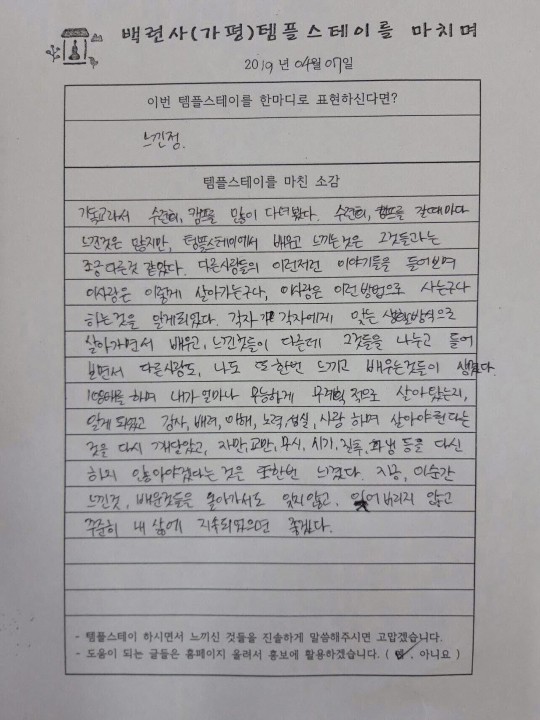 백련사(가평)템플스테이를 마치며
2019년 04월 07일
이번 템플스테이를 한마디로 표현하신다면?
느낀점.
템플스테이를 마친 소감
기독교라서 수련회, 캠프를 많이 다녀봤다. 수련회, 캠프를 갈때마다
느낀것은 많지만, 템플스테이에서 배우고 느끼는것은 그것들과는
조금 다른것 같았다. 다른사람들의 이런저런 이야기들을 들어보며
이사람은 이렇게 살아가는구나, 이사람은 이런방법으로 사는구나
하는것을 알게되었다. 각자가 각자에게 맞는 생활방식으로
살아가면서 배우고, 느낀것들이 다른데 그것들을 나누고 들어
보면서 다른사람도, 나도 또한번 느끼고 배우는것들이 생겼다.
하며 내가 얼마나 무능하게 무계획적으로 살아왔는지,
알게 되었고 감사, 배려, 이해, 노력, 성실, 사랑 하며 살아야 된다는
것을 다시 깨달았고, 자만, 교만, 무시, 시기, 질투, 화냄 등을 다신
하지 않아야겠다는 것을 또한번 느꼈다. 지금, 이순간
느낀것, 배운것들을 돌아가서도 잊지않고, 잃어버리지 않고
꾸준히 내 삶에 지속되었으면 좋겠다.
- 템플스테이 하시면서 느끼신 것들을 진솔하게 말씀해주시면 고맙겠습니다.
- 도움이 되는 글들은 홈페이지 올려서 홍보에 활용하겠습니다. ( 예, 아니요 )